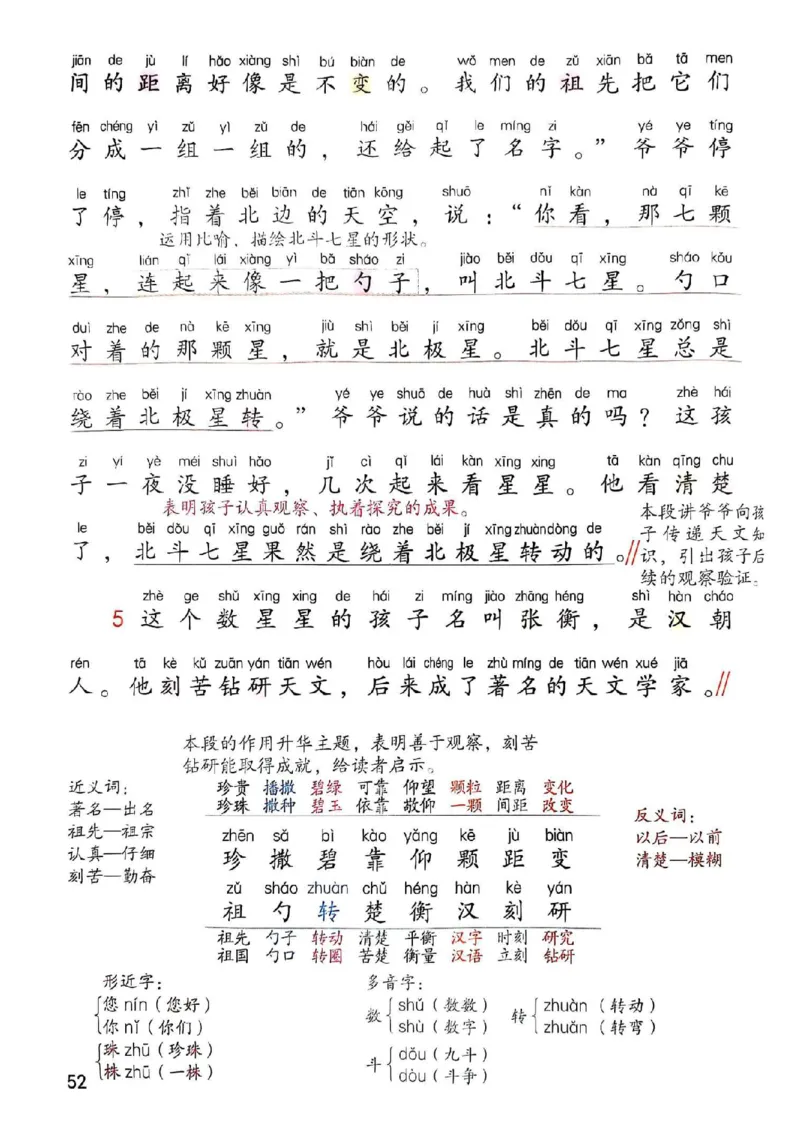 jiān de jù lí hǎo xiàng shì bú biàn de wǒ men de zǔ xiān bǎ tā men
间的距离好像是不变的。我们的祖先把它们
fēn chéng yì zǔ yì zǔ de hái gěi qǐ le míng zi yé ye tíng
分成一组一组的，还给起了名字。”爷爷停
le tíng zhǐ zhe běi biān de tiān kōng shuō nǐ kàn nà qī kē
了停，指着北边的天空，说：“你看，那七颗
运用比喻，描绘北斗七星的形状。
xīng lián qǐ lái xiàng yì bǎ sháo zi jiào běi dǒu qī xīng sháo kǒu
星，连起来像一把勺子，叫北斗七星。勺口
duì zhe de nà kē xīng jiù shì běi jí xīng běi dǒu qī xīng zǒng shì
对着的那颗星，就是北极星。北斗七星总是
rào zhe běi jí xīng zhuàn yé ye shuō de huà shì zhēn de ma zhè hái
绕着北极星转。”爷爷说的话是真的吗？这孩
zi yí yè méi shuì hǎo jǐ cì qǐ lái kàn xīng xing tā kàn qīng chu
子一夜没睡好，几次起来看星星。他看清楚
表明孩子认真观察、执着探究的成果。
le běi dǒu qī xīng guǒ rán shì rào zhe běi jí xīng zhuàn dòng de
了，北斗七星果然是绕着北极星转动的。//
本段讲爷爷向孩
子传递天文知
识，引出孩子后
续的观察验证。
zhè ge shǔ xīng xing de hái zi míng jiào zhāng héng shì hàn cháo
5 这个数星星的孩子名叫张衡，是汉朝
rén tā kè kǔ zuān yán tiān wén hòu lái chéng le zhù míng de tiān wén xué jiā
人。他刻苦钻研天文，后来成了著名的天文学家。//
本段的作用升华主题，表明善于观察，刻苦
钻研能取得成就，给读者启示。
近义词：
著名—出名
祖先—祖宗
认真—仔细
刻苦—勤奋
珍贵 播撒 碧绿 可靠 仰望 颗粒 距离 变化
珍珠 撒种 碧玉 依靠 敬仰 一颗 间距 改变
zhēn sǎ bì kào yǎng kē jù biàn
珍 撒 碧 靠 仰 颗 距 变
zǔ sháo zhuàn chǔ héng hàn kè yán
祖 勺 转 楚 衡 汉 刻 研
祖先 勺子 转动 清楚 平衡 汉字 时刻 研究
祖国 勺口 转圈 苦楚 衡量 汉语 立刻 钻研
反义词：
以后—以前
清楚—模糊
形近字：
您 nín（您好）
你 nǐ（你们）
珠 zhū（珍珠）
株 zhū（一株）
多音字：
数 shǔ（数数）
shù（数字）
转 zhuàn（转动）
zhuǎn（转弯）
斗 dǒu（九斗）
dòu（斗争）
52